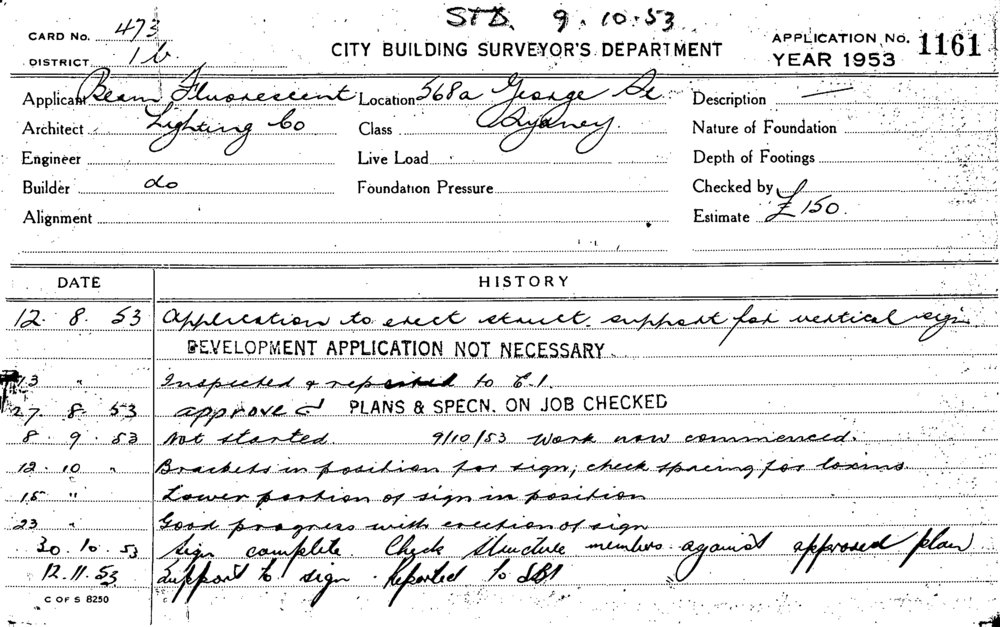 STD. 9.10.53
CARD No. 473
DISTRICT 1b.
CITY BUILDING SURVEYOR'S DEPARTMENT
APPLICATION No. 1161
YEAR 1953
Applicant Beam Fluorescent Location 568a George St Description
Architect Lighting Co Class Sydney. Nature of Foundation
Engineer Live Load Depth of Footings
Builder do Foundation Pressure Checked by
Alignment Estimate £150.
DATE HISTORY
12. 8. 53 Application to erect struct. support for vertical sign
DEVELOPMENT APPLICATION NOT NECESSARY.
13 " Inspected & reported to E.I.
27. 8. 53 approved PLANS & SPECN. ON JOB CHECKED
8. 9. 53 Not started 9/10/53 Work now commenced.
12. 10 " Brackets in position for sign; check spacing for
15 " Lower portion of sign in position
23 " Good progress with erection of sign
30. 10. 53 Sign complete. Check structure members against approved plan
12. 11. 53 Support to sign. Reported to
C OF S 8250